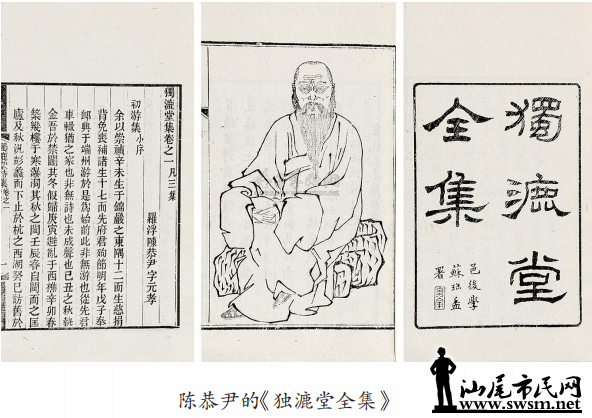 獨漉堂
全集
邑後學
署
獨漉堂集卷之一 凡三集
羅浮陳恭尹字元孝
初游集 小序
余以崇禎辛未生于錦巖之東隅十二而生慈捐
背免喪補諸生十七而先府君殉節明年戊子奉
卹典于端州游於是為始前此非無游也從先君
車轍猶之家也非無詩也未成聲也己丑之秋
金吾於禁闥其冬假歸庚寅避亂于西樵辛卯春
築幾樓于寒瀑洞其秋之閩壬辰春自閩而之匡
廬及秋汎彭蠡而下止於杭之西湖癸巳訪舊於
陈恭尹的《独漉堂全集》
汕尾市民网
www.swsm.net